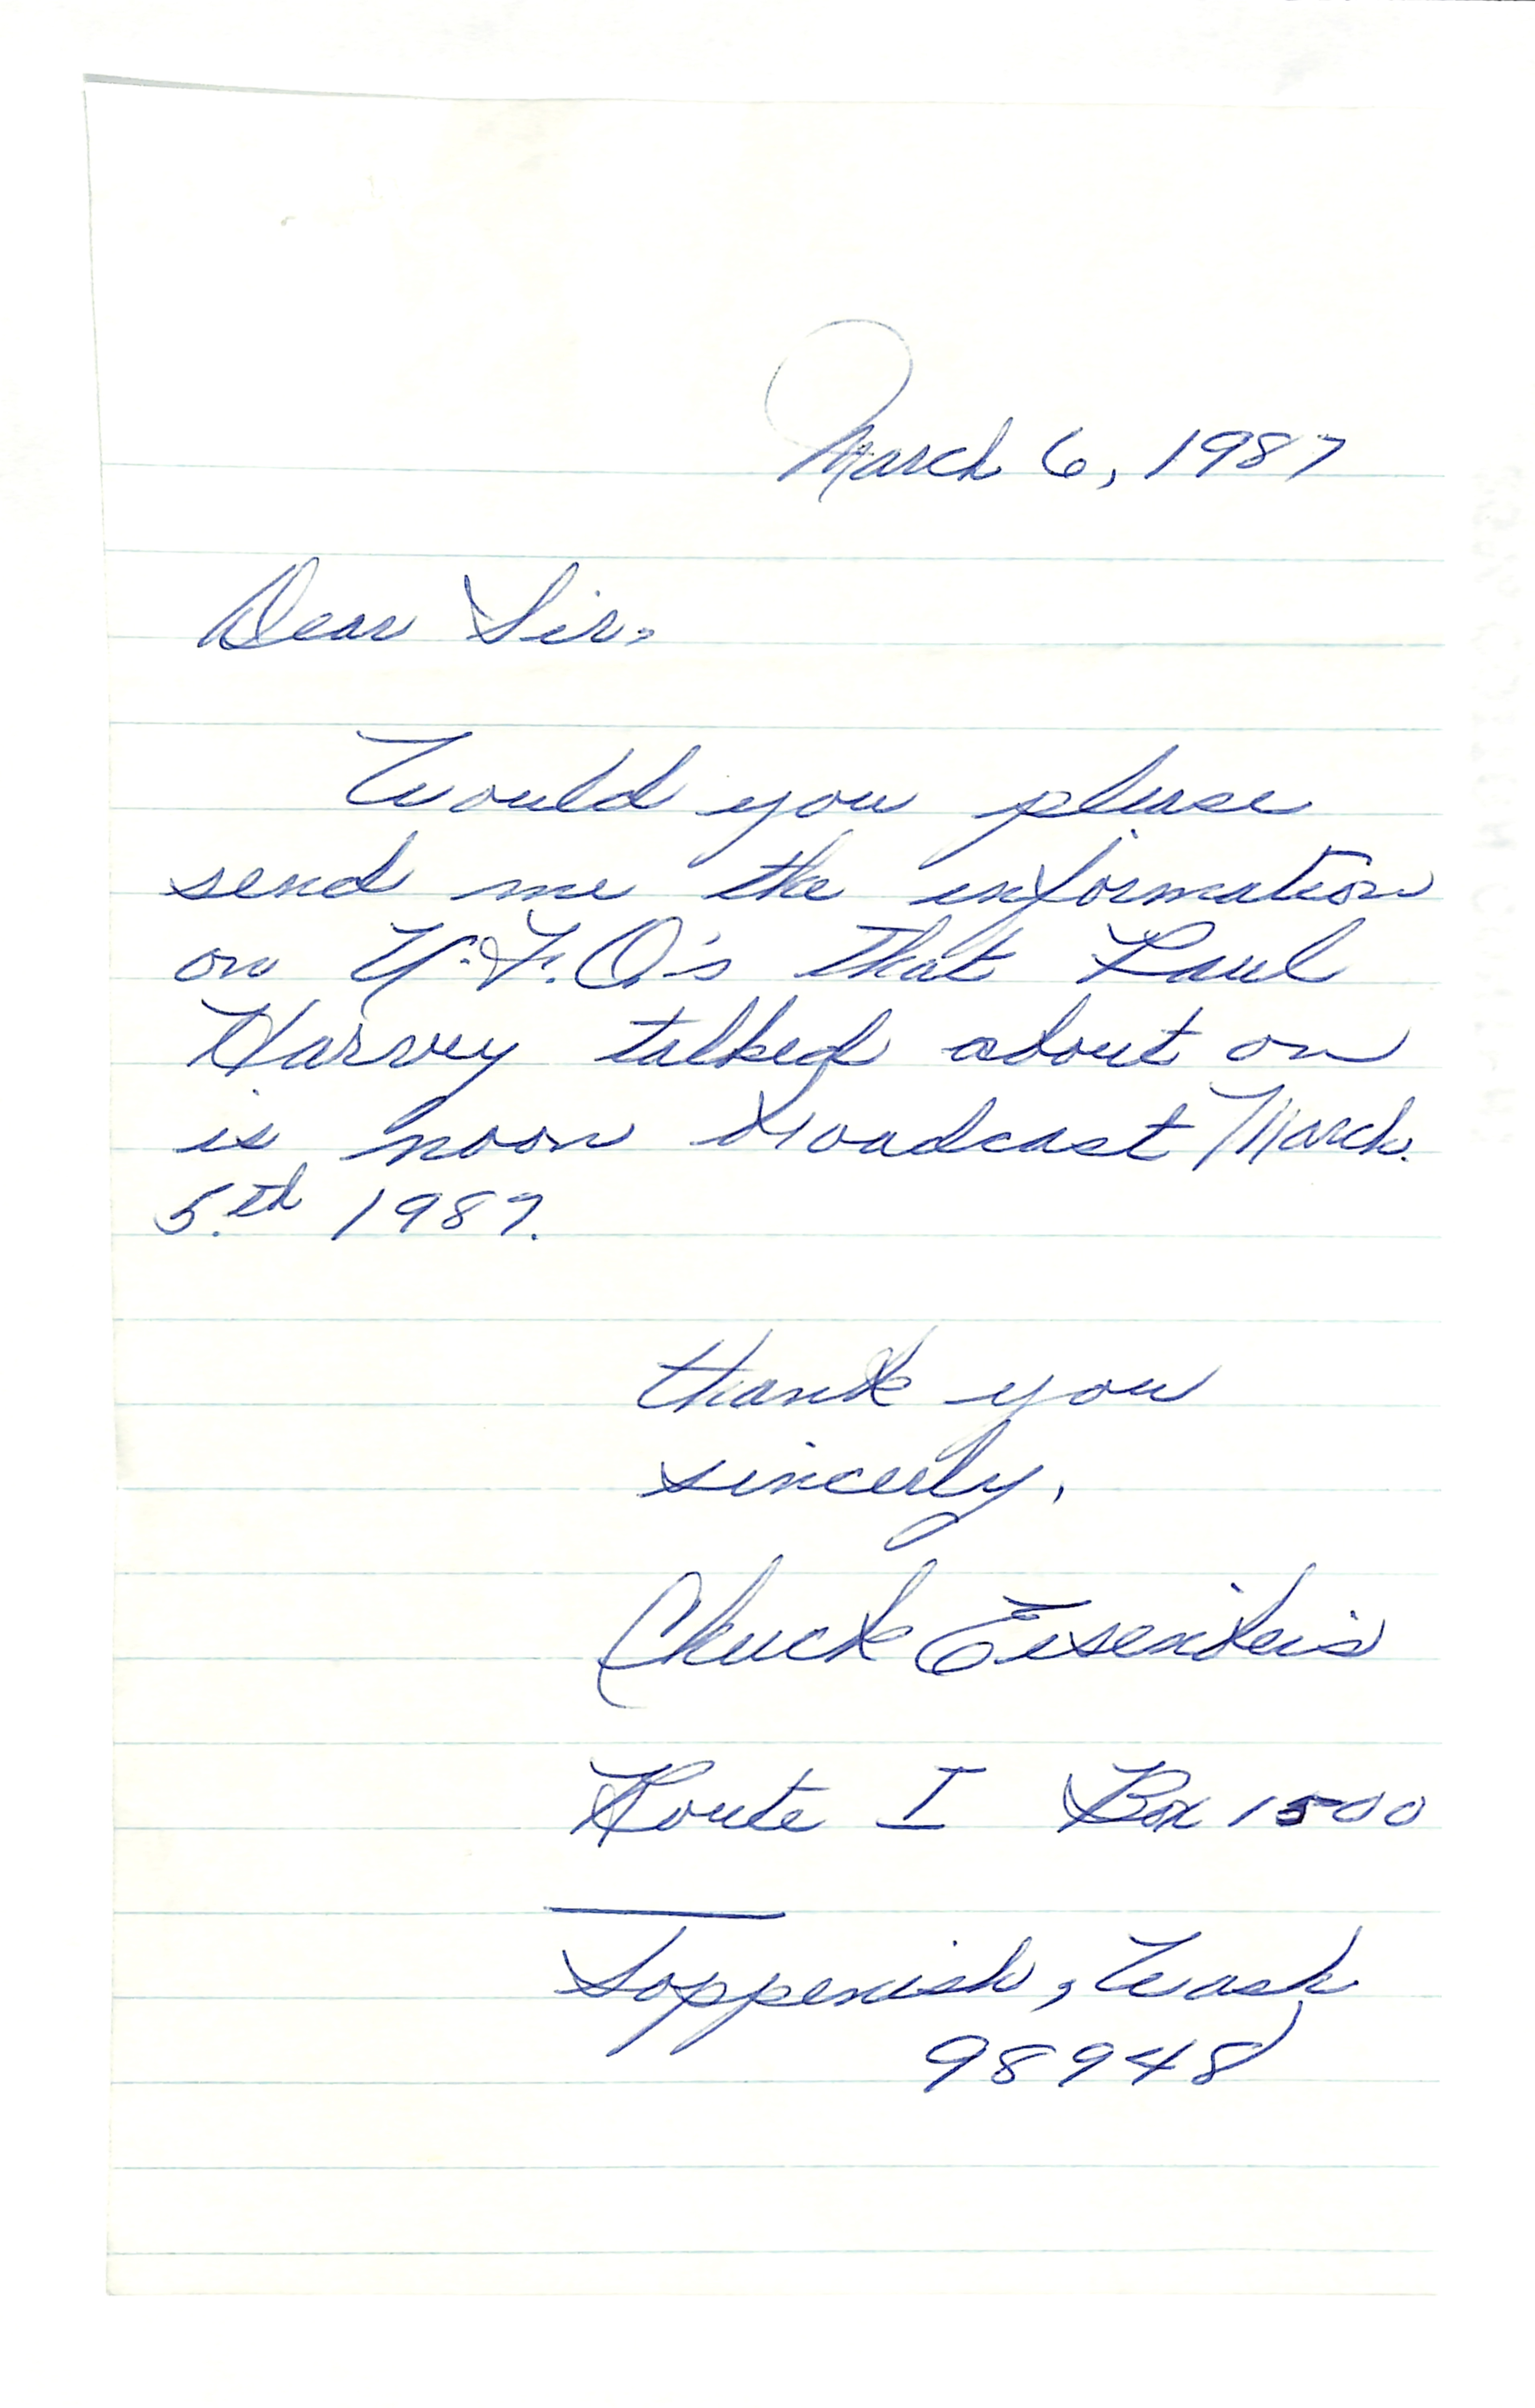 March 6, 1987
Dear Sir,
Would you please
send me the information
on U.F.O's that Paul
Harvey talked about on
is noon broadcast March
5.th 1987.
thank you
sincerly,
Chuck
Route I Box 1500
Toppenish, Wash
98948